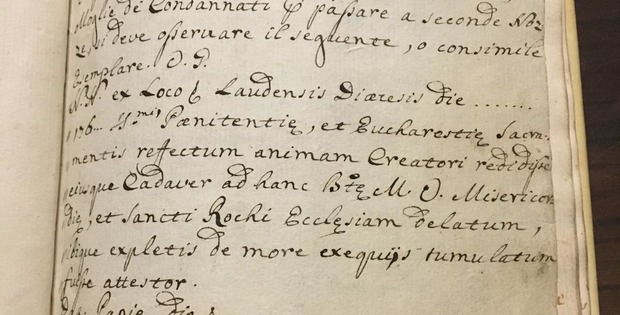 moglie de Condannati p passare a seconde Noz-
ze, si deve osservare il seguente, o consimile
Esemplare. V. G.
N. N. ex Loco &. Laudensis Diæcesis die .......
176... SSmis Pænitentię, et Eucharestię Sacra-
mentis refectum animam Creatori redidisse
ejusque Cadaver ad hanc Btę M. V. Misericor-
dię, et Sancti Rochi Ecclęsiam delatum,
ibique expletis de more exequijs tumulatum
fuisse attestor.
Dat. Papię die &